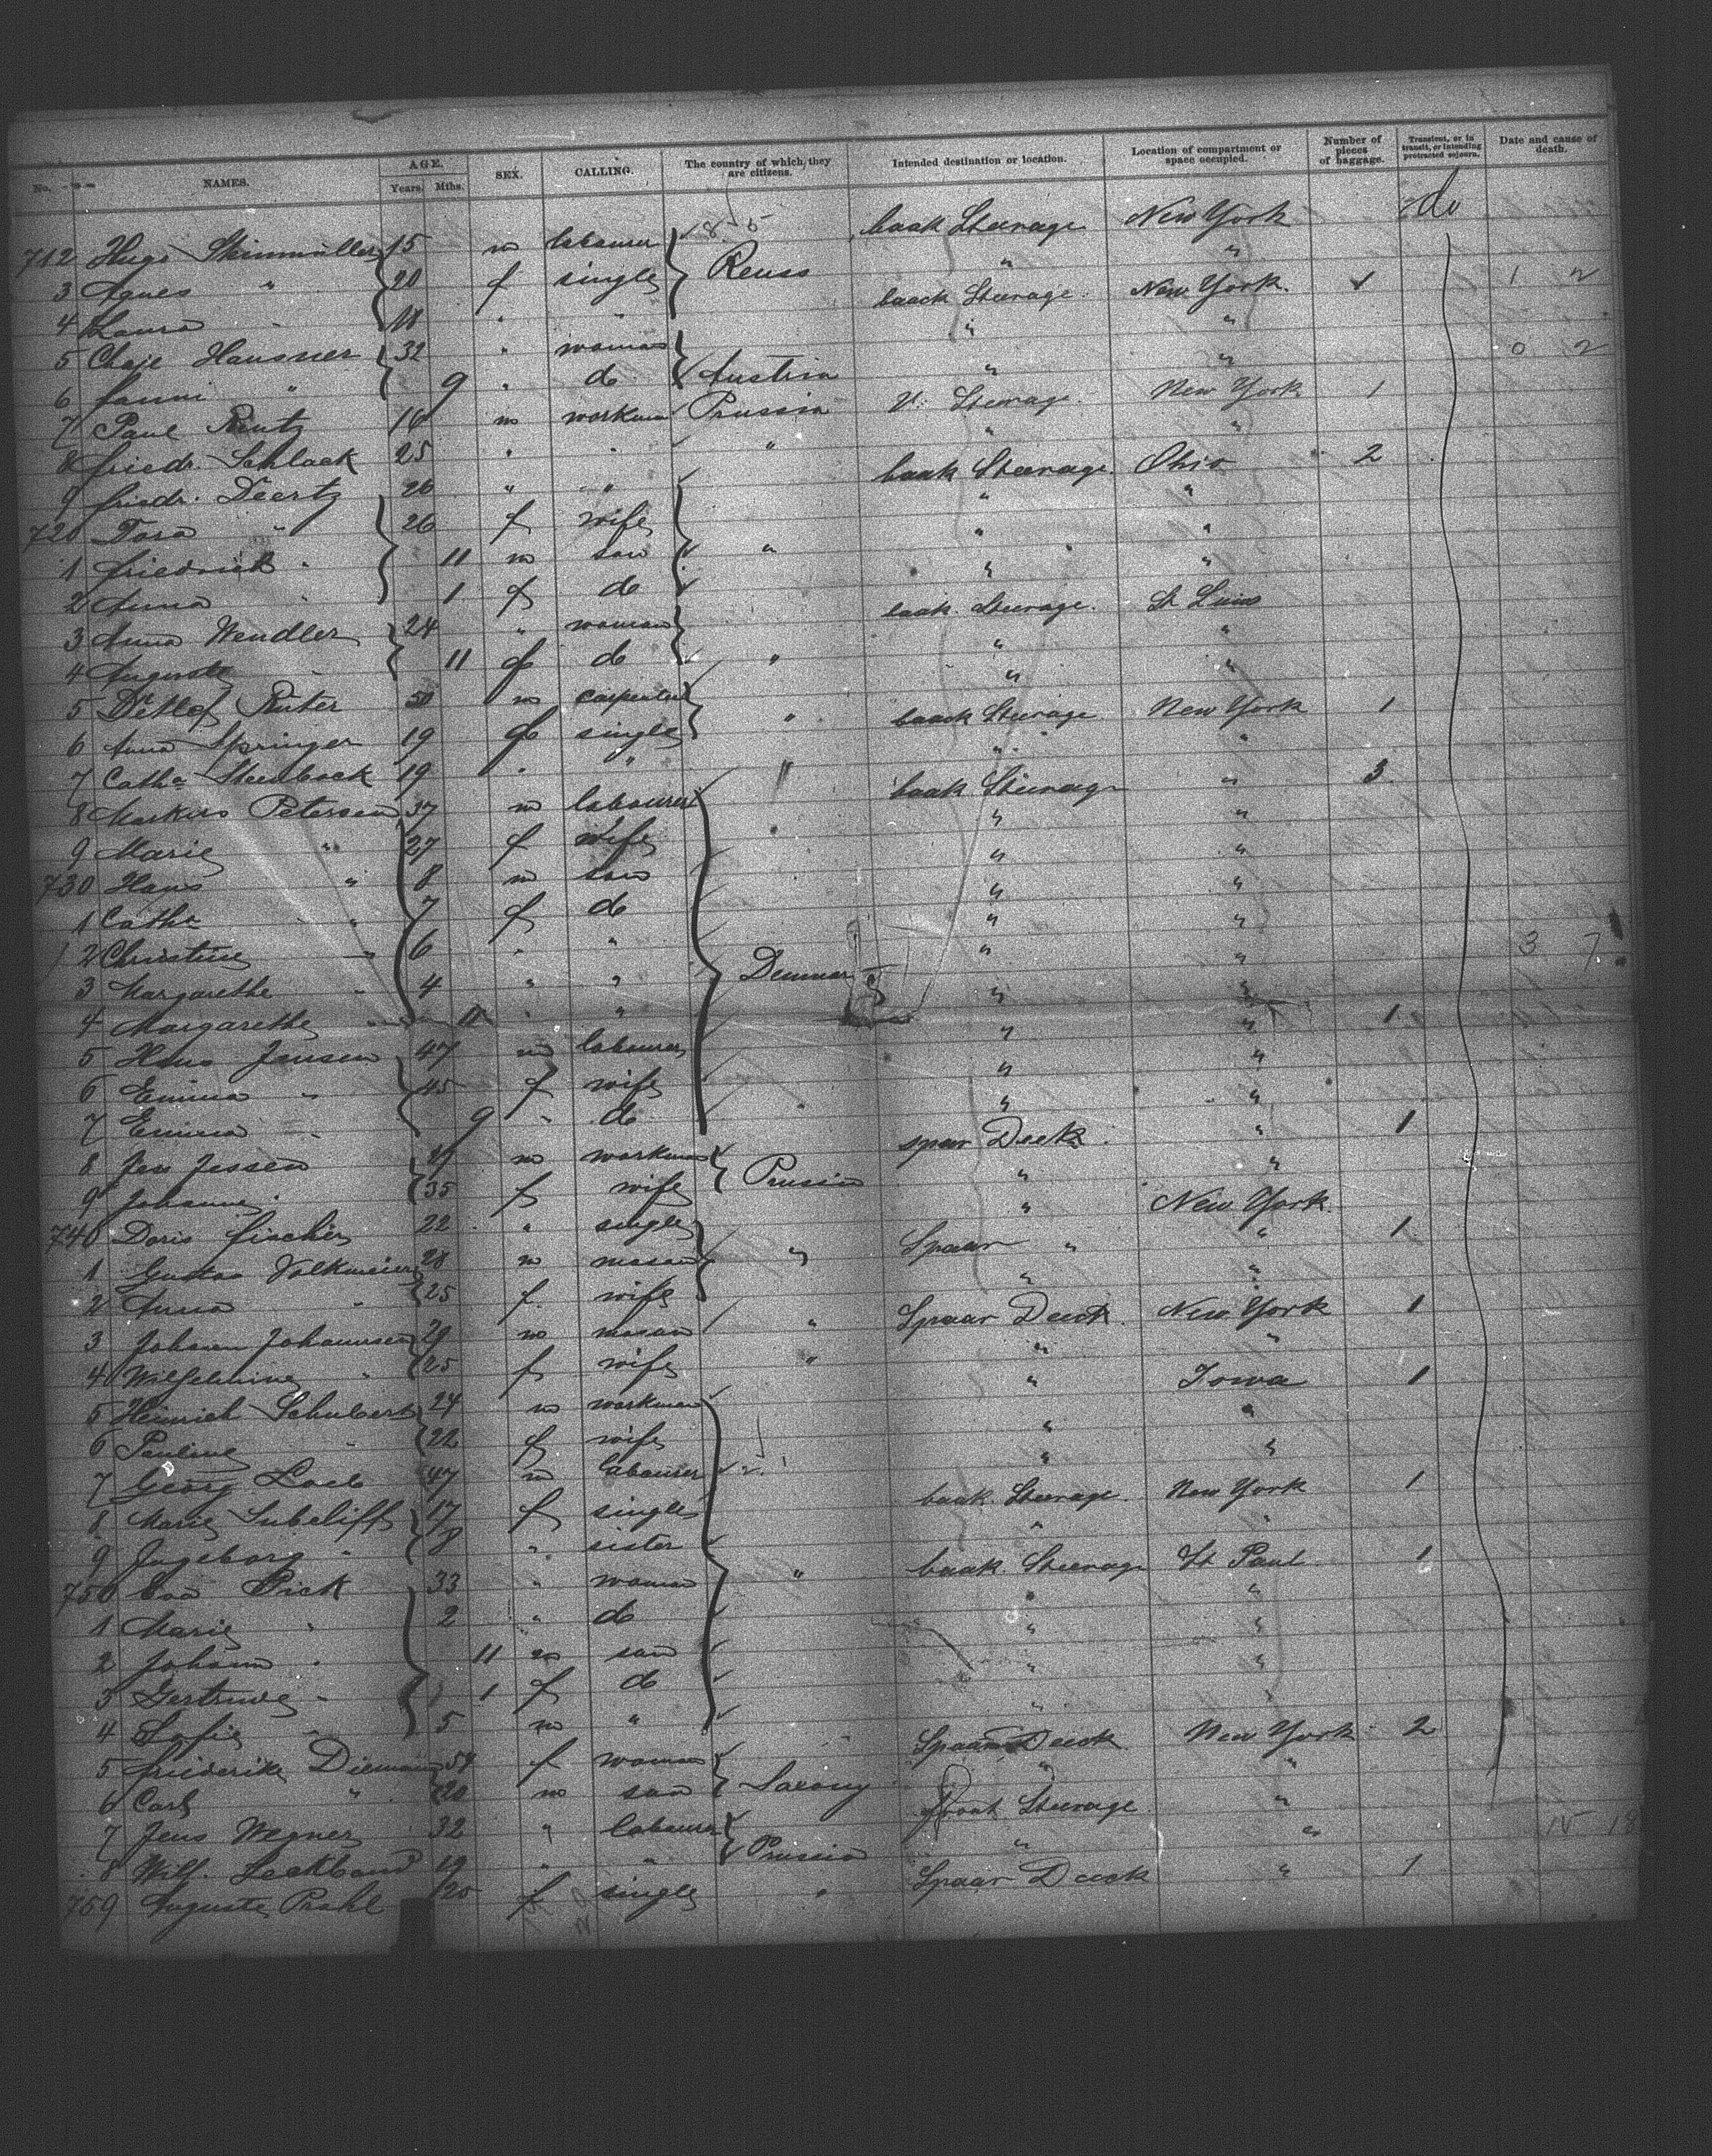 No. NAMES. AGE. Years. Mths. SEX. CALLING. The country of which they are citizens. Intended destination or location. Location of compartment or space occupied. Number of pieces of baggage. Transient, or in transit, or intending protracted sojourn. Date and cause of death.
712 Hugo Steinmüller 15 m labourer Reuss baak Steerage New York do
3 Agnes " 20 f single " "
4 Laura " 18 " " baack Steerage New York.
5 Chaje Hausner 32 " woman Austria " "
6 Fanni " 9 " do " "
7 Paul Rentz 16 m workman Prussia V. Steerage New York 1
8 Friedr. Schlack 25 " " " " "
9 Friedr. Deertz 26 " " baak Steerage Ohio 2
720 Dora " 26 f wife " "
1 Friedrich " 11 m son " " "
2 Anna " 1 f do " "
3 Anna Wendler 24 " woman baak Steerage St Luis
4 Auguste " 11 f do " " "
5 Detlef Ruter 50 m carpenter " "
6 Anna Springer 19 f single " baack Steerage New York 1
7 Catha Steenbock 19 " " " " "
8 Markus Petersen 37 m labourer baak Steerage " 3
9 Marie " 27 f wife " "
730 Hans " 8 m son " "
1 Catha " 7 f do " "
2 Christine " 6 " " " "
3 Margarethe " 4 " " Denmark " "
4 Margarethe " 11 " " " "
5 Hans Jansen 47 m labourer " " 1
6 Emma " 45 f wife " "
7 Emma " 9 " do " "
8 Jes Jessen m workman Prussia spar Deck " 1
9 Johanne " 35 f wife " "
740 Doris Fischer 22 " single " " New York
1 Gustav Volkmeier 28 m mason " Spaar " " 1
2 Anna " 25 f wife " "
3 Johann Johannsen 29 m mason " Spaar Deck New York 1
4 Wilhelmine " 25 f wife " " "
5 Heinrich Schubert 24 m workman " Iowa 1
6 Pauline " 22 f wife " "
7 Georg Loeb 47 m labourer " "
8 Marie 17 f single baak Steerage New York 1
9 Ingeborg " 8 " sister " "
750 Eva Pick 33 " woman " baak Steerage St Paul 1
1 Marie " 2 " do " "
2 Johann " 11 m son " "
3 Gertrude " 1 f do " "
4 Sofie " 5 m " " "
5 Friederike 54 f woman Saxony Spaar Deck New York 2
6 Carl " 20 m son " "
7 Jens Wegner 32 " labourer Prussia front Steerage "
8 Wilh. Leckband 19 " " " "
759 Auguste Prahl 20 f single " Spaar Deck " 1